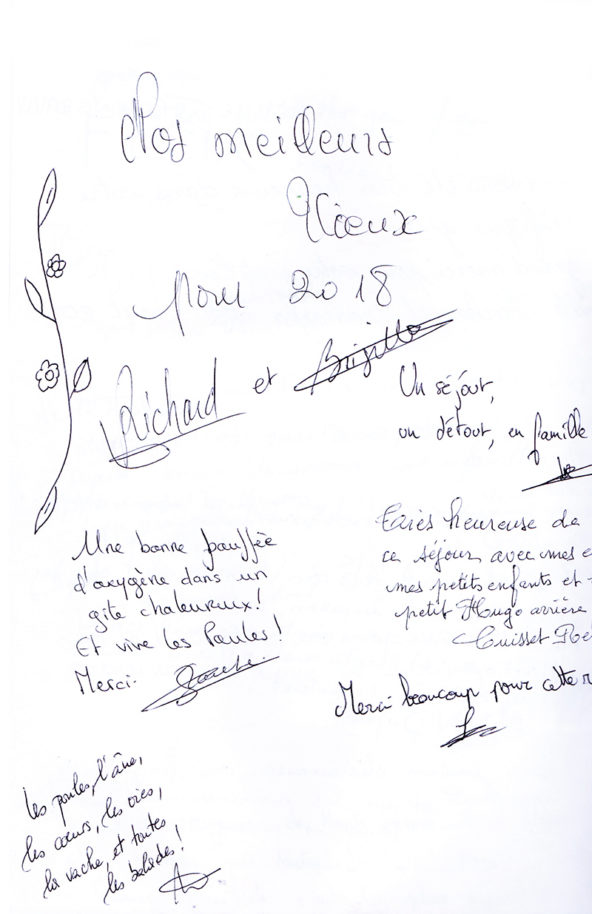 Nos meilleurs
Vœux
pour 2018
Richard et Brigitte
Un séjour,
un détour, en famille
Très heureuse de
ce séjour avec mes
mes petits enfants et
petit Hugo arrière
Merci beaucoup pour cette
Une bonne bouffée
d'oxygène dans un
gite chaleureux!
Et vive les Poules!
Merci.
Les poules, l'âne,
les cœurs, les oies,
la vache, et toutes
les balades!